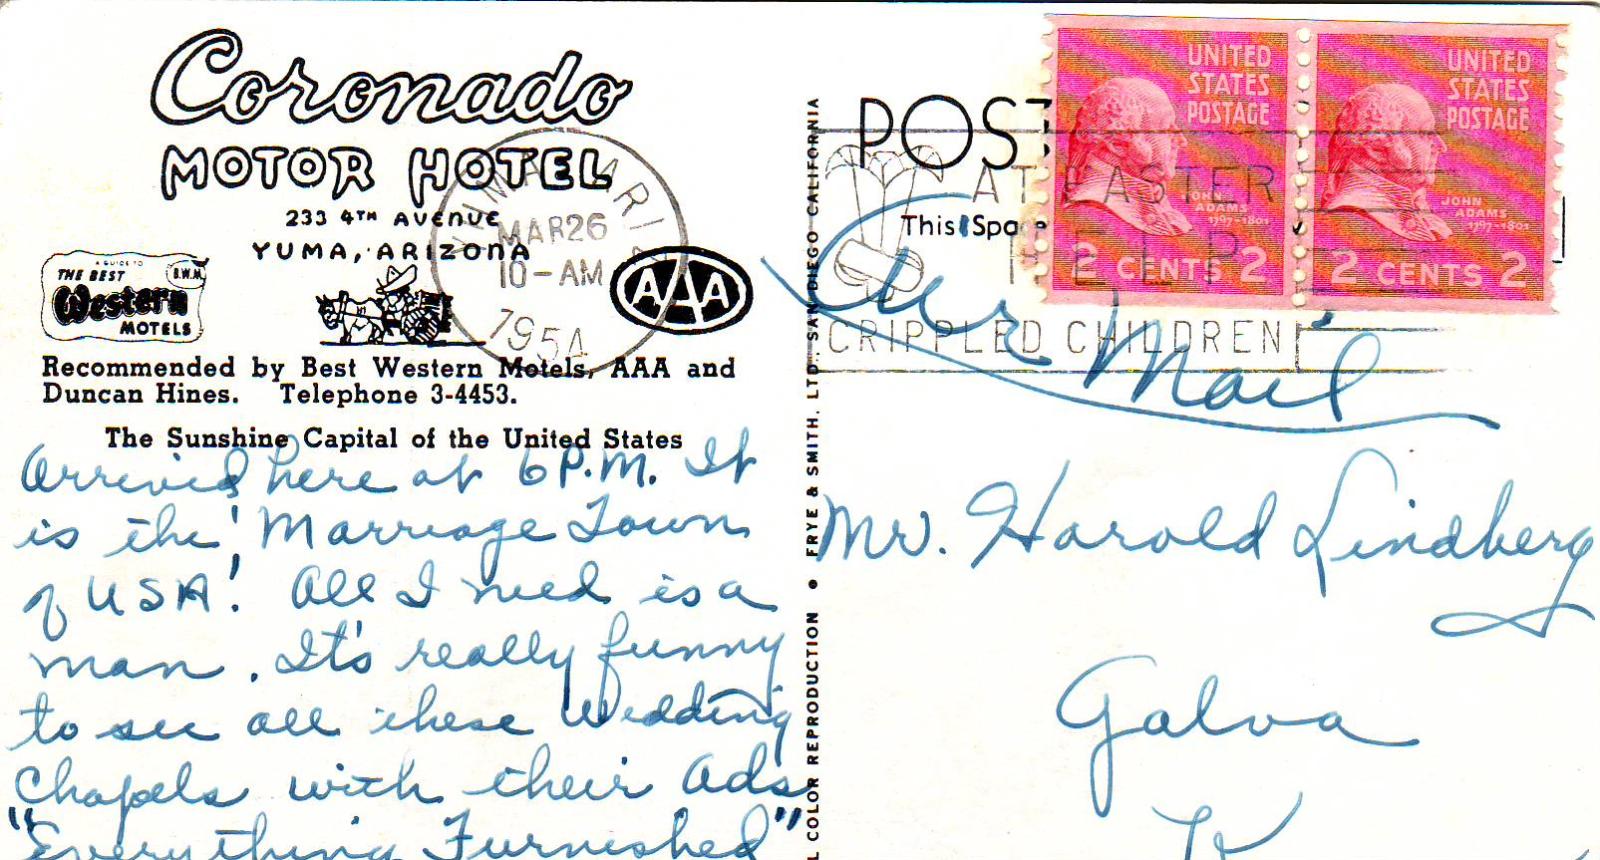 Coronado
MOTOR HOTEL
233 4TH AVENUE
YUMA, ARIZONA
A GUIDE TO
THE BEST
B.W.M.
Western
MOTELS
AAA
Recommended by Best Western Motels, AAA and
Duncan Hines. Telephone 3-4453.
The Sunshine Capital of the United States
Arrived here at 6 P.M. It
is the "Marriage Town
of USA! All I need is a
man. It's really funny
to see all these Wedding
Chapels with their Ads
"Everything Furnished"
YUMA ARIZ
MAR 26
10-AM
1954
L COLOR REPRODUCTION • FRYE & SMITH, LTD., SAN DIEGO CALIFORNIA
POST
This Space
AT EASTER
HELP
CRIPPLED CHILDREN
UNITED
STATES
POSTAGE
JOHN
ADAMS
1797-1801
2 CENTS 2
UNITED
STATES
POSTAGE
JOHN
ADAMS
1797-1801
2 CENTS 2
Air Mail
Mr. Harold Lindberg
Galva